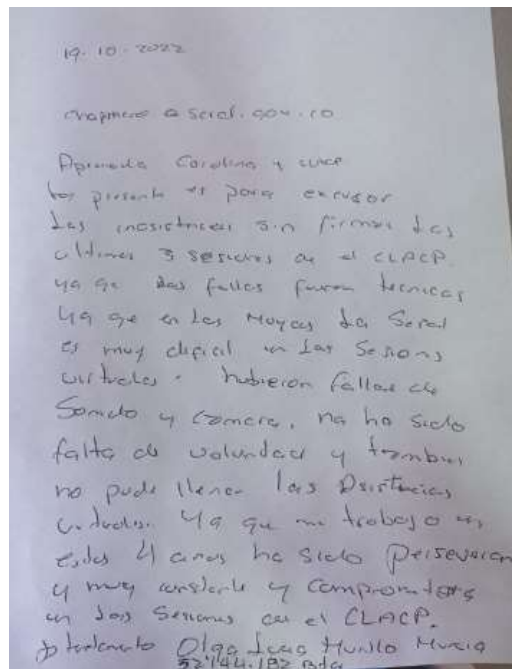 19-10-2022
chapinero@scrd.gov.co
Apreciada Carolina y CLACP
La presente es para excusar
Las inasistencias sin firmas Las
ultimas 3 sesiones de el CLACP.
ya qe las fallas fueron tecnicas
Ya qe en Los Moyas La Señal
es muy dificil en Las Sesions
virtuales. hubieron fallas de
Sonido y camara. no ha sido
falta de voluntad y tambien
no pude llenar las Asistencias
virtuales. Ya que mi trabajo en
estos 4 años ha sido perseverante
y muy constante y comprometedora
en Las Sesiones con el CLACP.
Atentamente Olga Murillo Murcia